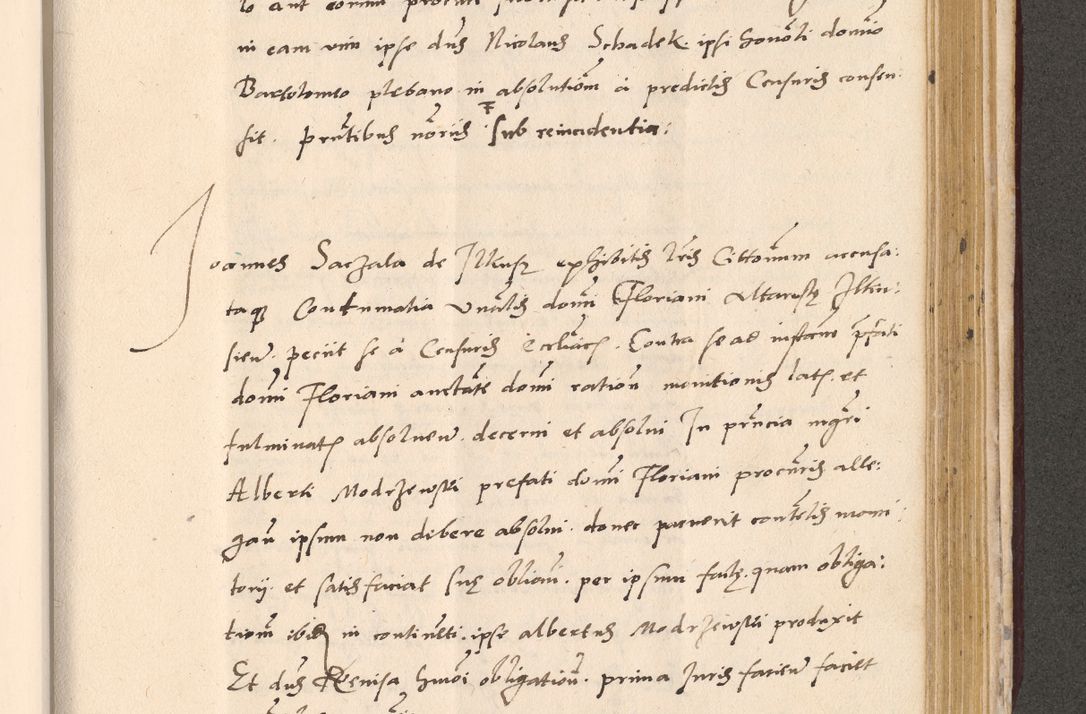 in eam vim ipse dns Nicolaus Schadek ipsi honobli domino
Bartolomeo plebano in absolutiom a predictis Censuris consen
sit. Pntibus notriis sub reincidentia:
Joannes Saczala de Ilkusz exhibitis lris Cittorium accusa:
taque Contumatia vnalis domi Floriani Altariste Ilku:
sien. petiit se a Censuris Ecclticis. Contra se ad instanc pfati
domi Floriani auctate domi ration monitionis lat. et
fulminat absoluen. decerni et absolui In pncia mgri
Alberti Modrzewski prefati domi Floriani procuris alle:
gan ipsum non debere absolui. donec paruerit contetis moni:
torii et satisfaciat sue obliaoni. per ipsum facte. quam obliga:
tiom ibidem in continenti. ipse albertus Modrzewski produxit
Et dns hmoi obligation. prima Juris facien faciet